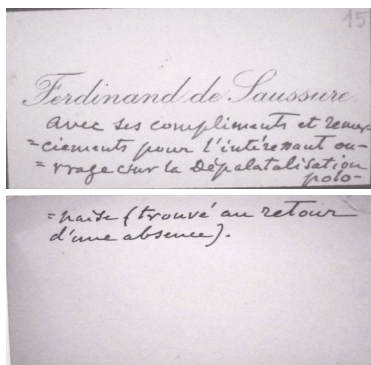 15
Ferdinand de Saussure
avec ses compliments et remer
=ciements pour l'intéressant ou-
=vrage sur la Dépalatalisation
polo-
=naise (trouvé au retour
d'une absence).